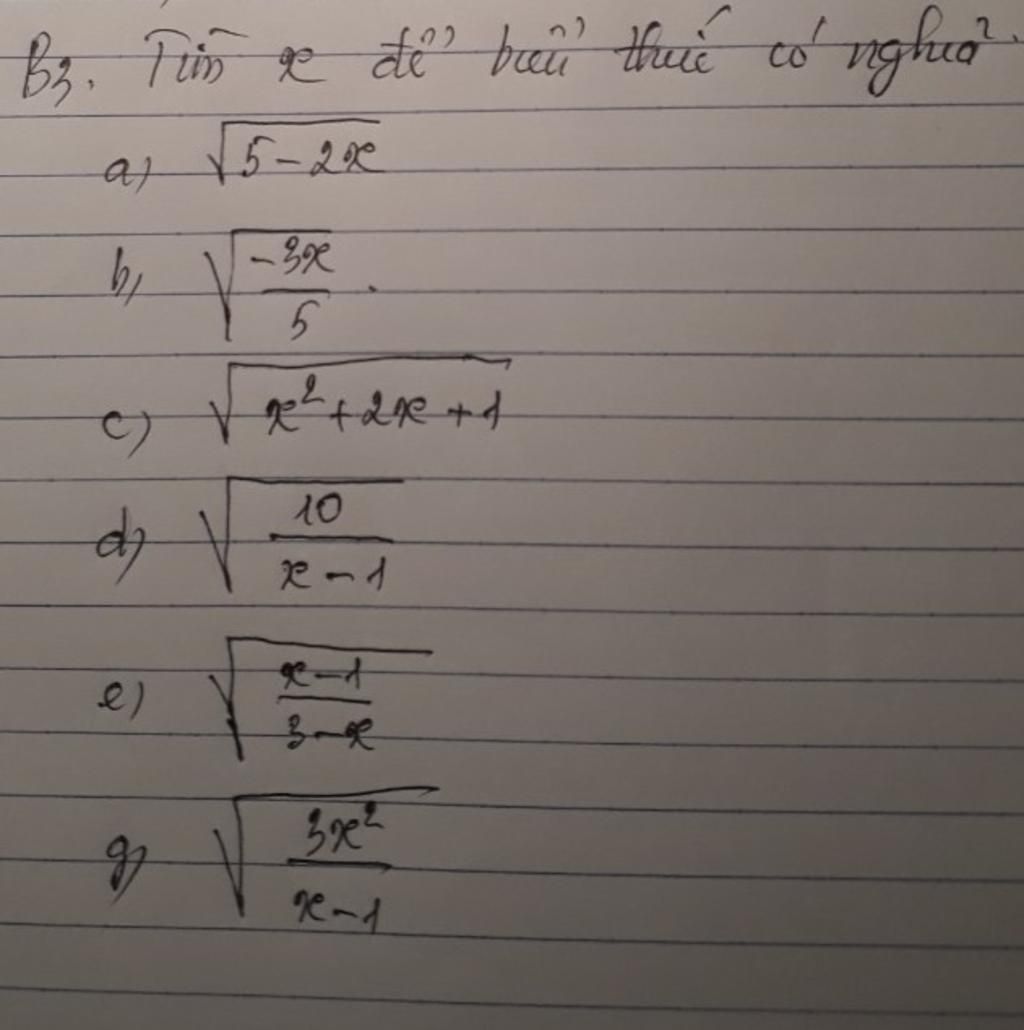 B3. Tìm x để biểu thức có nghĩa
a) √(5-2x)
b) √(-3x/5).
c) √(x²+2x+1)
d) √(10/(x-1))
e) √((x-1)/(3-x))
g) √(3x²/(x-1))